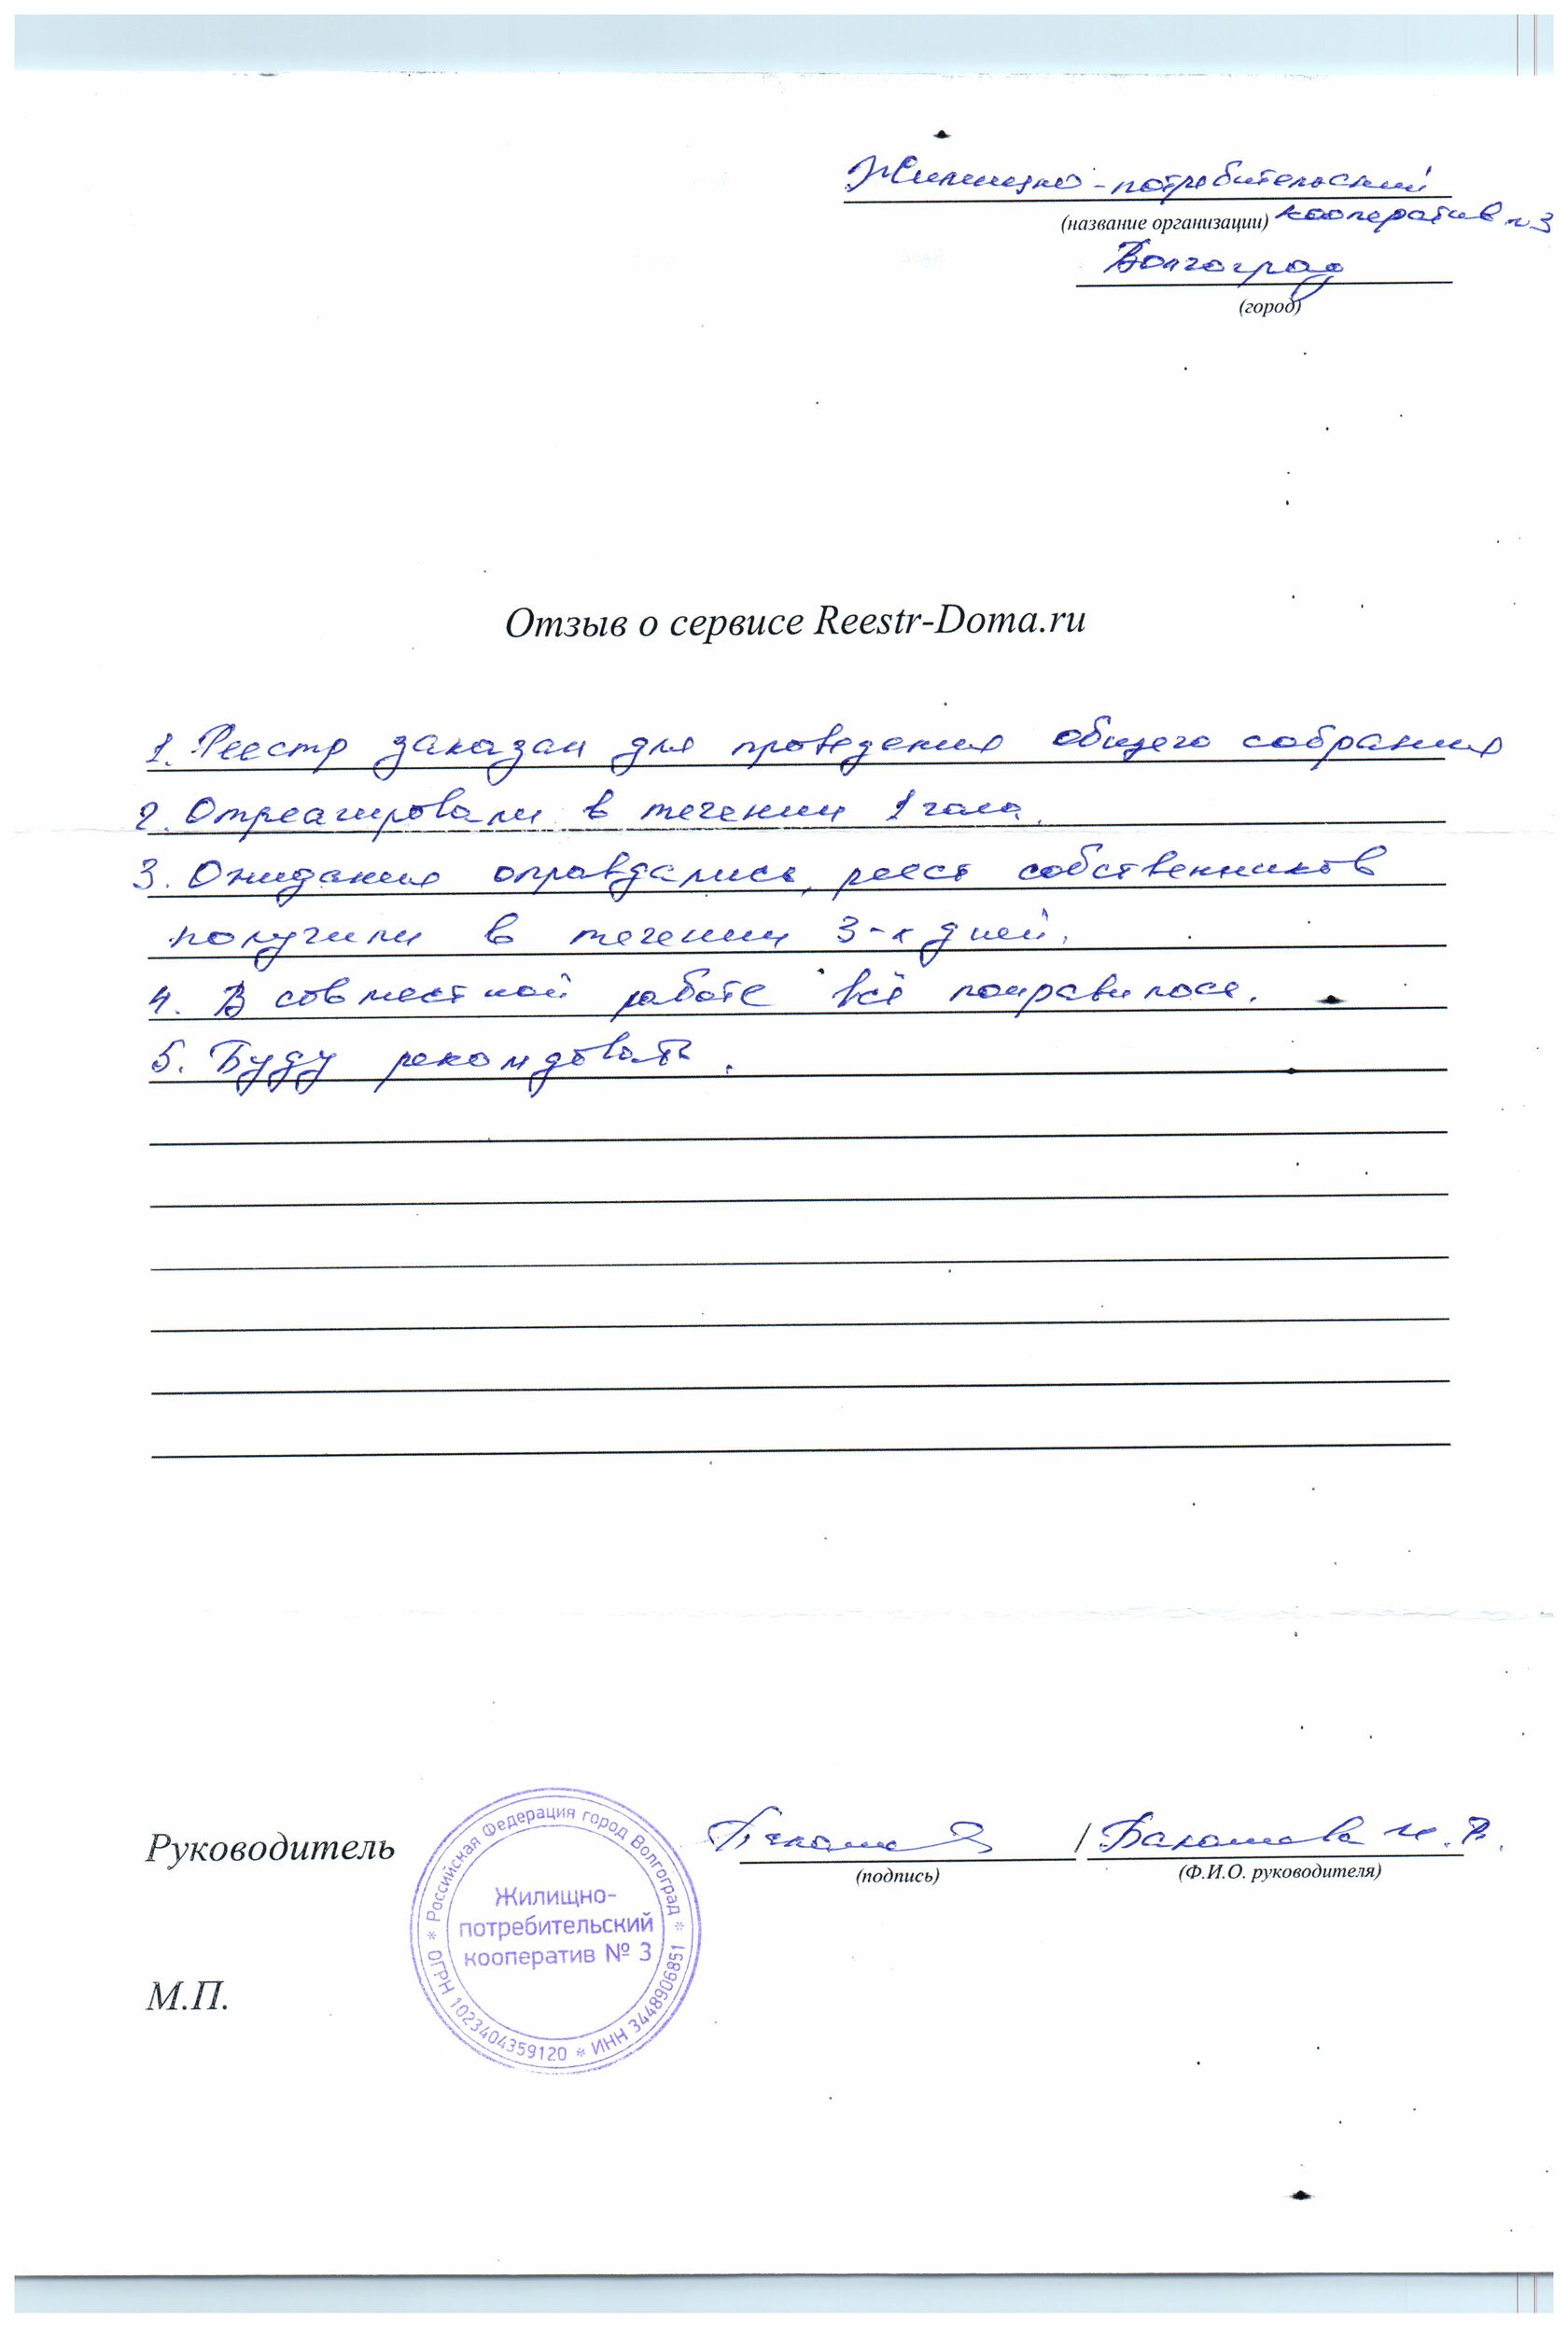 Жилищно-потребительский
(название организации) кооператив №3
Волгоград
(город)
Отзыв о сервисе Reestr-Doma.ru
1. Реестр заказан для проведения общего собрания
2. Отреагировали в течении 1 часа.
3. Ожидания оправдались, реест собственников
получили в течении 3-х дней.
4. В совместной работе всё понравилось.
5. Буду рекомдовать.
Руководитель
/
(подпись)
(Ф.И.О. руководителя)
* Российская Федерация город Волгоград *
Жилищно-
потребительский
кооператив № 3
ОГРН 1023404359120 * ИНН 3448906851
М.П.